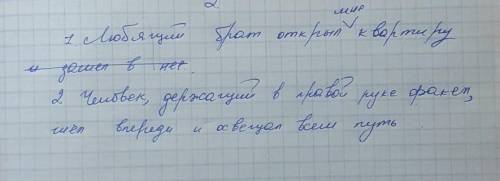 2
1 Любящий брат открыл мне квартиру
и зашел в нее.
2 Человек, держащий в правой руке факел,
шел впереди и освещал всем путь